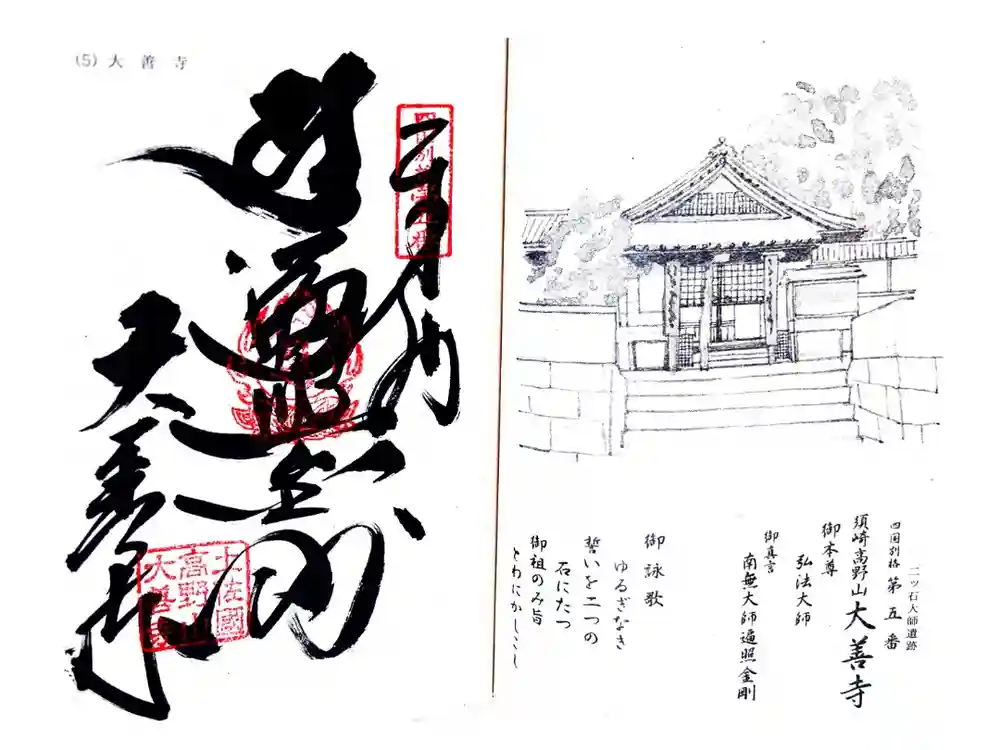 (5) 大善寺
遍照金剛
大善寺
土佐國
高野山
大善寺
二ツ石大師遺跡
四国別格 第五番
須崎高野山 大善寺
御本尊
弘法大師
御真言
南無大師遍照金剛
御詠歌
ゆるぎなき
誓いを二つの
石にたつ
御祖のみ旨
とわにかしこし